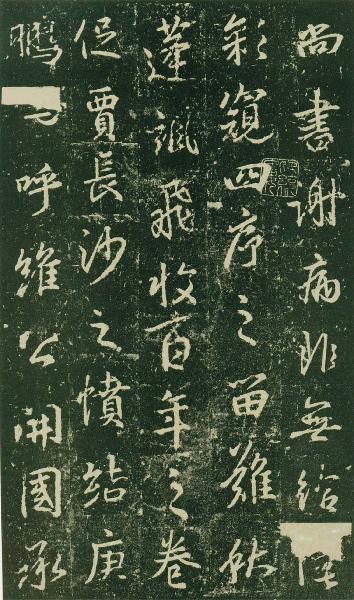 尚書謝病非無給
彩窺四序之留難秋
蓬颯飛收百年之卷
促賈長沙之憤站庚
鵬嗚呼維公開國承